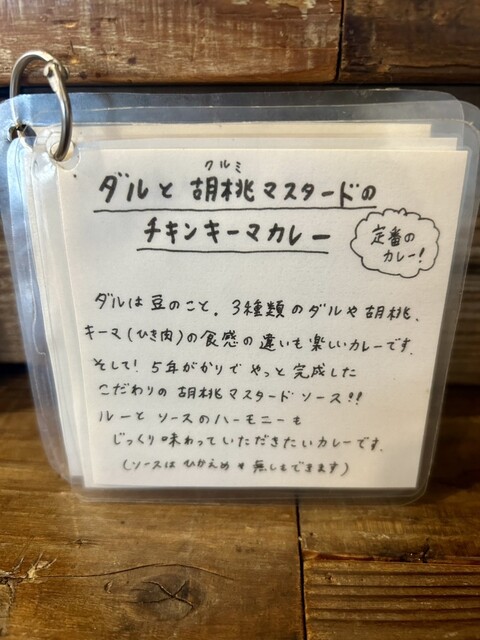 クルミ
ダルと胡桃マスタードの
チキンキーマカレー
定番の
カレー!
ダルは豆のこと。3種類のダルや胡桃、
キーマ(ひき肉)の食感の違いも楽しいカレーです。
そして! 5年がかりでやっと完成した
こだわりの胡桃マスタードソース!!
ルーとソースのハーモニーも
じっくり味わっていただきたいカレーです。
(ソースはひかえめ も 無しもできます)